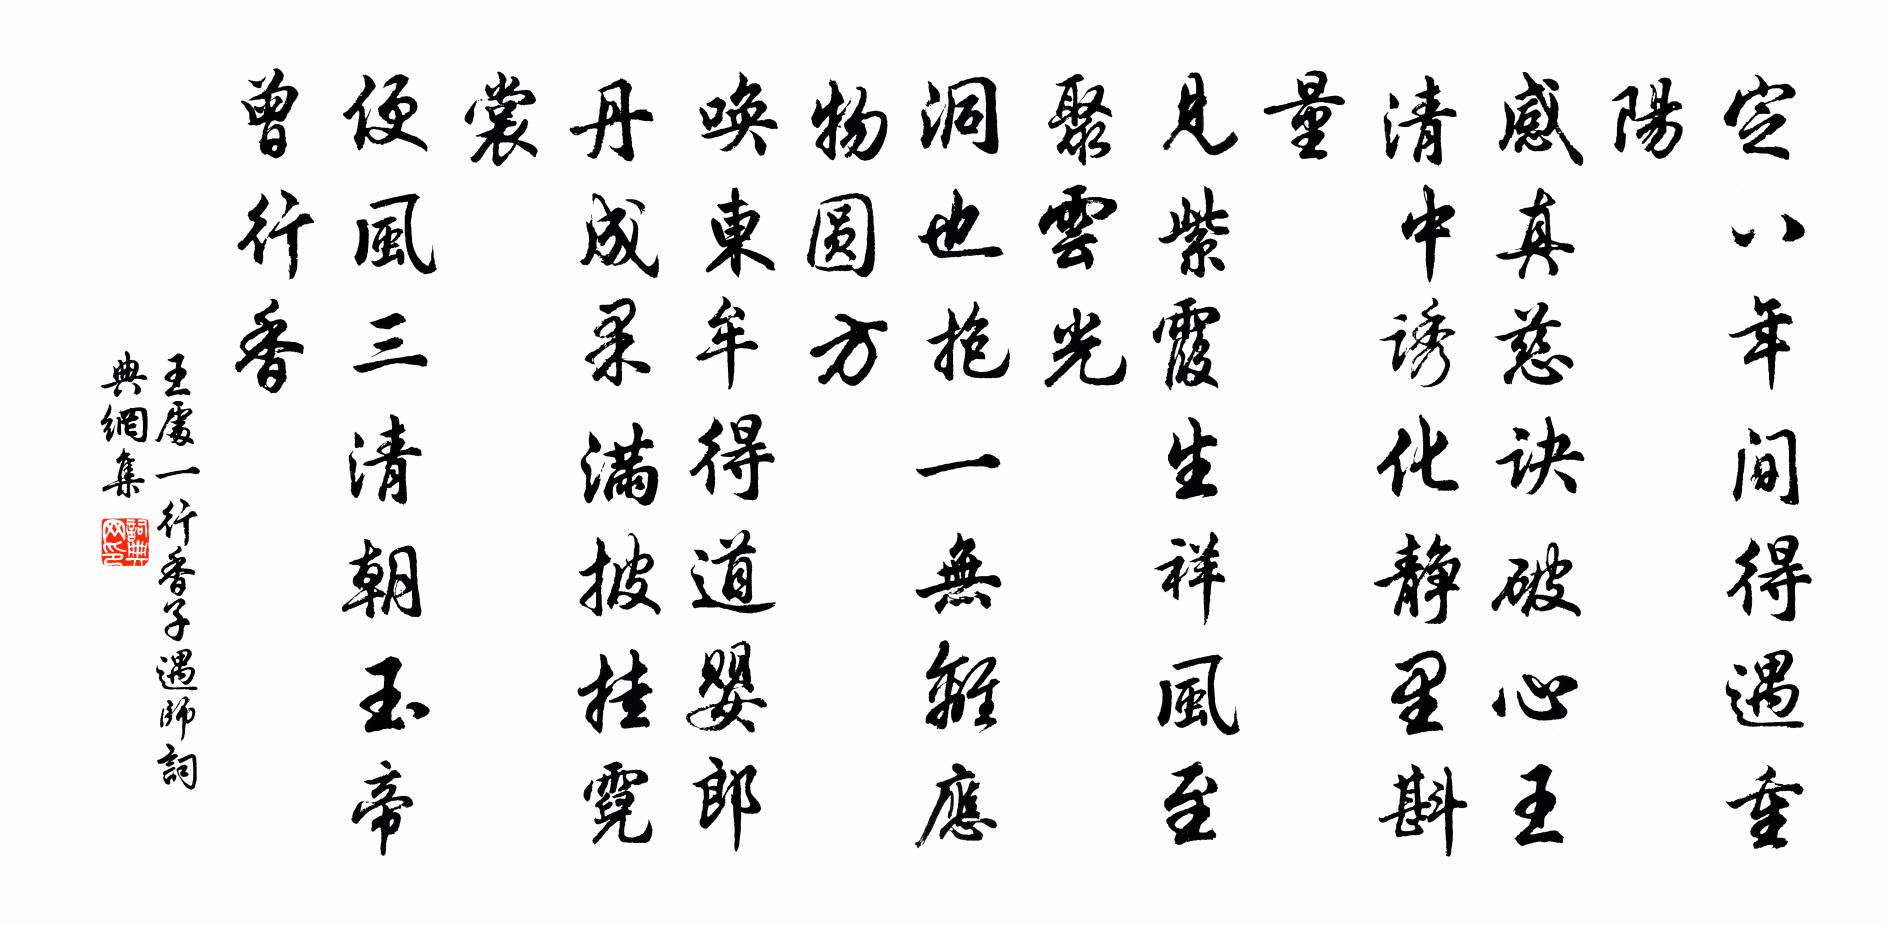 定八年間得遇重
陽
感真慈訣破心王
清中誘化静里斟
量
見紫霞生祥風至
聚雲光
洞也抱一無離應
物圆方
唤東牟得道嬰郎
丹成果满披挂霓
裳
便風三清朝玉帝
曾行香
王處一行香子遇師詞
典網集
詞典网印